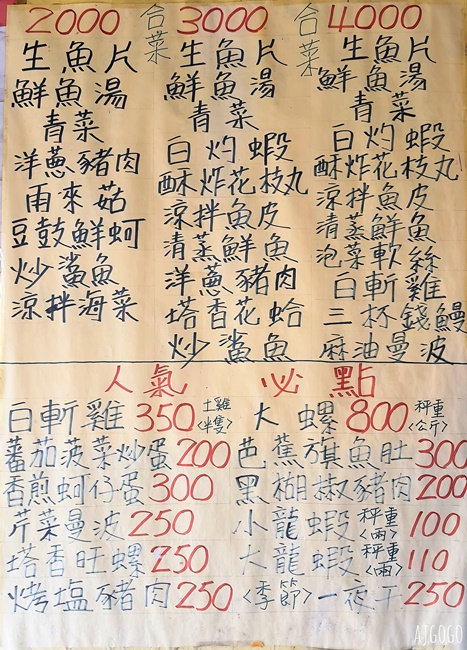 2000 合菜 3000 合菜 4000
生魚片
鮮魚湯
青菜
洋蔥豬肉
雨來菇
豆鼓鮮蚵
炒鯊魚
涼拌海菜
生魚片
鮮魚湯
青菜
白灼蝦
酥炸花枝丸
涼拌魚皮
清蒸鮮魚
洋蔥豬肉
塔香花蛤
炒鯊魚
生魚片
鮮魚湯
青菜
白灼蝦
酥炸花枝丸
涼拌魚皮
清蒸鮮魚
泡菜軟絲
白斬雞
三杯錢鰻
麻油曼波
人氣 必點
白斬雞 350 土雞〈半隻〉
蕃茄菠菜炒蛋 200
香煎蚵仔蛋 300
芹菜曼波 250
塔香旺螺 250
烤塩豬肉 250
大螺 800 秤重〈公斤〉
芭蕉旗魚肚 300
黑糊椒豬肉 200
小龍蝦 秤重〈兩〉 100
大龍蝦 秤重〈兩〉 110
〈季節〉一夜干 250
AJGOGO